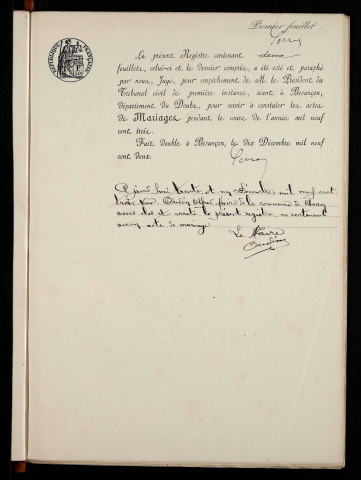 Premier feuillet
Le présent Registre contenant deux
feuillets, celui-ci et le dernier compris, a été coté et paraphé
par nous, Juge, pour empêchement de M. le Président du
Tribunal civil de première instance, séant à Besançon,
Département du Doubs, pour servir à constater les actes
de Mariages pendant le cours de l'année mil neuf
cent trois.
Fait double à Besançon, le dix Décembre mil neuf
cent deux.
Aujourd'hui trente et un Décembre mil neuf cent
trois Nous maire de la commune de
avons clos et arrêté le présent registre ne contenant
aucun acte de mariage
Le Maire
RÉPUBLIQUE FRANÇAISE